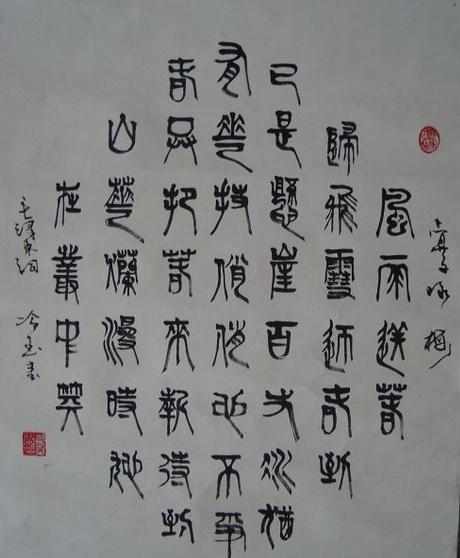 卜算子 咏梅
風雨送春
歸飛雪迎春到
已是懸崖百丈冰猶
有華枝俏俏也不爭
春只把春來報待到
山華爛漫時她
在叢中笑
毛澤東詞 书